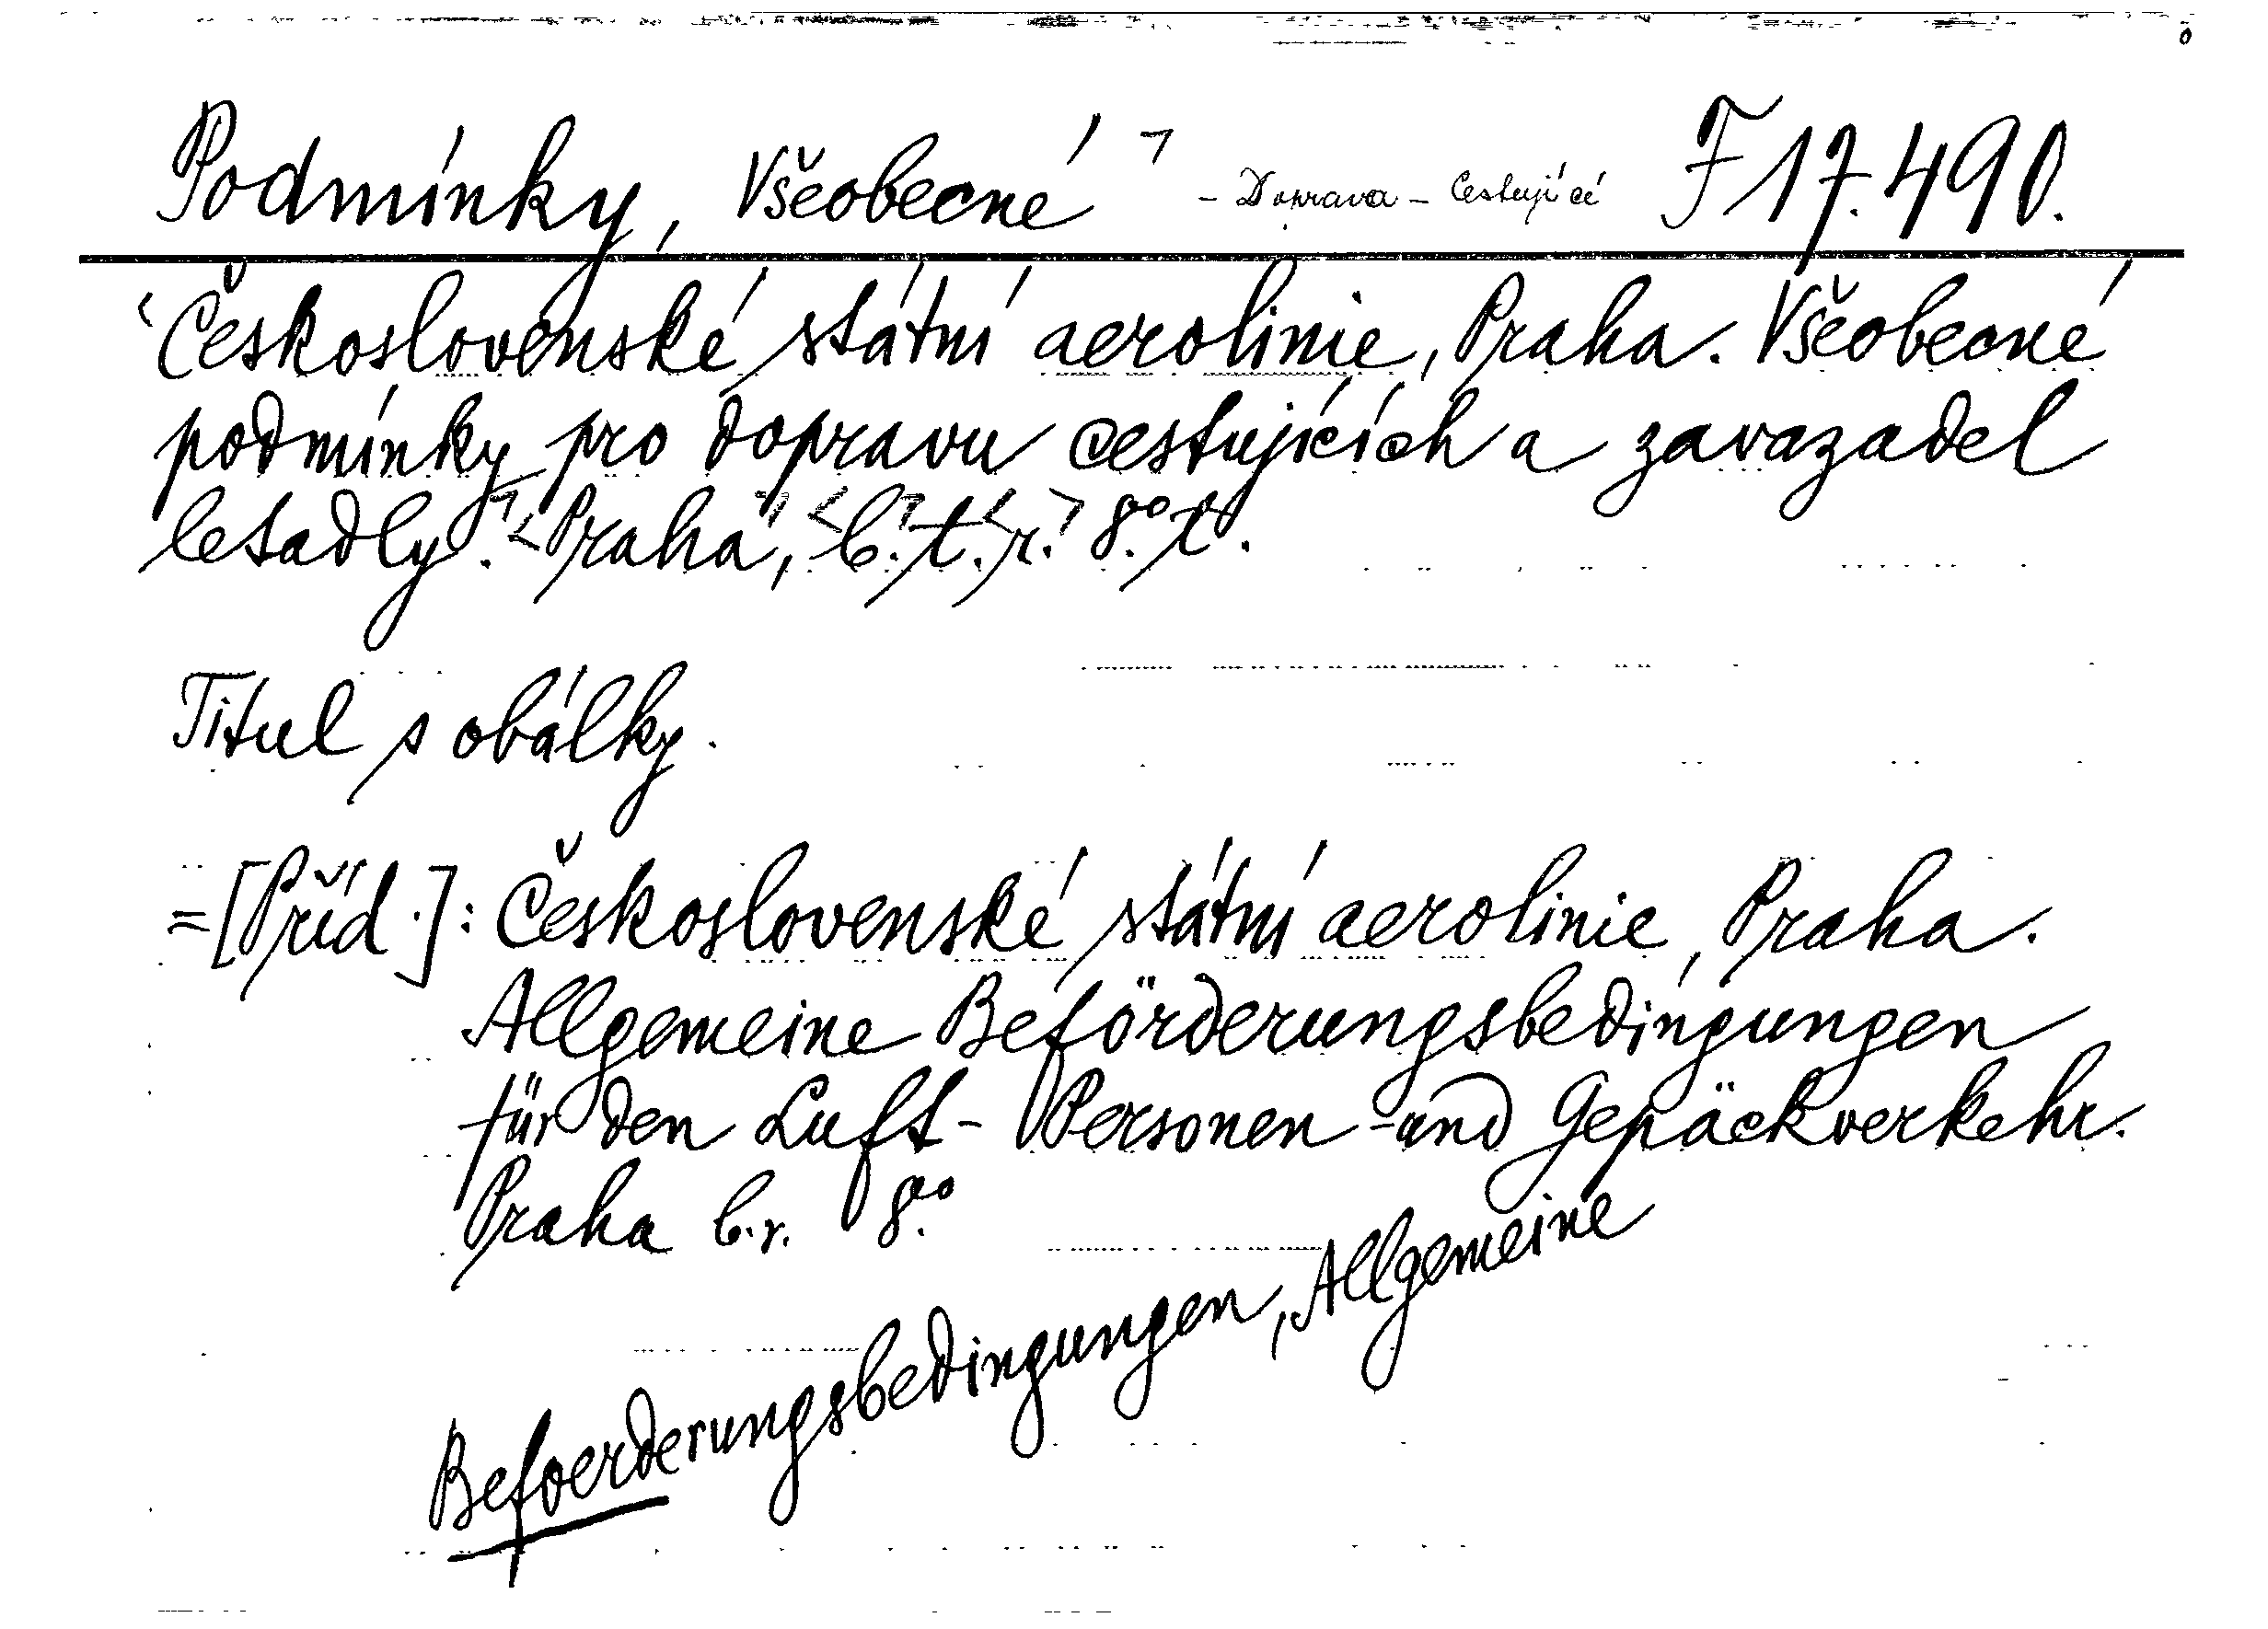 Podmínky, Všeobecné ⁊ - Doprava - Cestující F 17.490.
Československé státní aerolinie, Praha. Všeobecné
podmínky pro dopravu cestujících a zavazadel
letadly. <Praha>, <b.>t.<r.> 8.° t.
Titul s obálky.
=[Příd.]: Československé státní aerolinie, Praha.
Allgemeine Beförderungsbedingungen
für den Luft- Personen -und Gepäckverkehr.
Praha b.r. 8.°
Befoerderungsbedingungen, Allgemeine